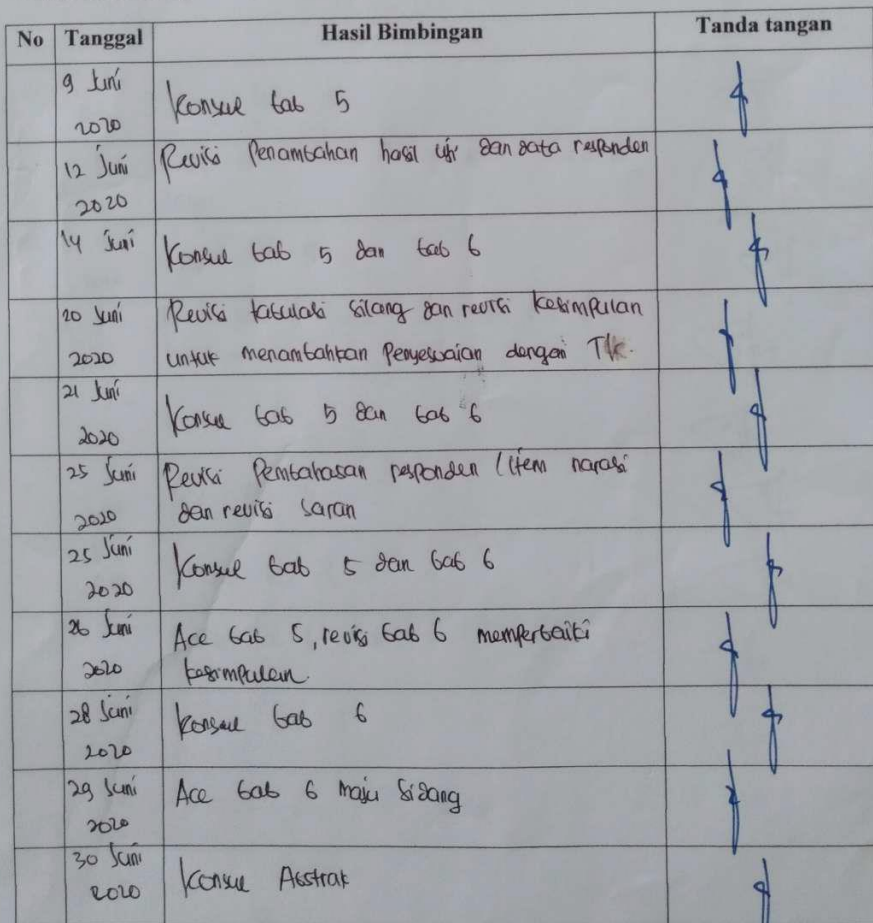 No Tanggal Hasil Bimbingan Tanda tangan
9 Juni
2020
Konsul bab 5
12 Juni
2020
Revisi Penambahan hasil uji dan data responden
14 Juni
Konsul bab 5 dan bab 6
20 Juni
2020
Revisi tabulasi silang dan revisi kesimpulan
untuk menambahkan Penyesuaian dengan
21 Juni
2020
Konsul bab 5 dan bab 6
25 Juni
2020
Revisi Pembahasan responden (item narasi
dan revisi saran
25 Juni
2020
Konsul bab 5 dan bab 6
26 Juni
2020
Acc bab 5, revisi bab 6 memperbaiki
kesimpulan.
28 Juni
2020
Konsul bab 6
29 Juni
2020
Acc bab 6 maju sidang
30 Juni
2020
Konsul Abstrak